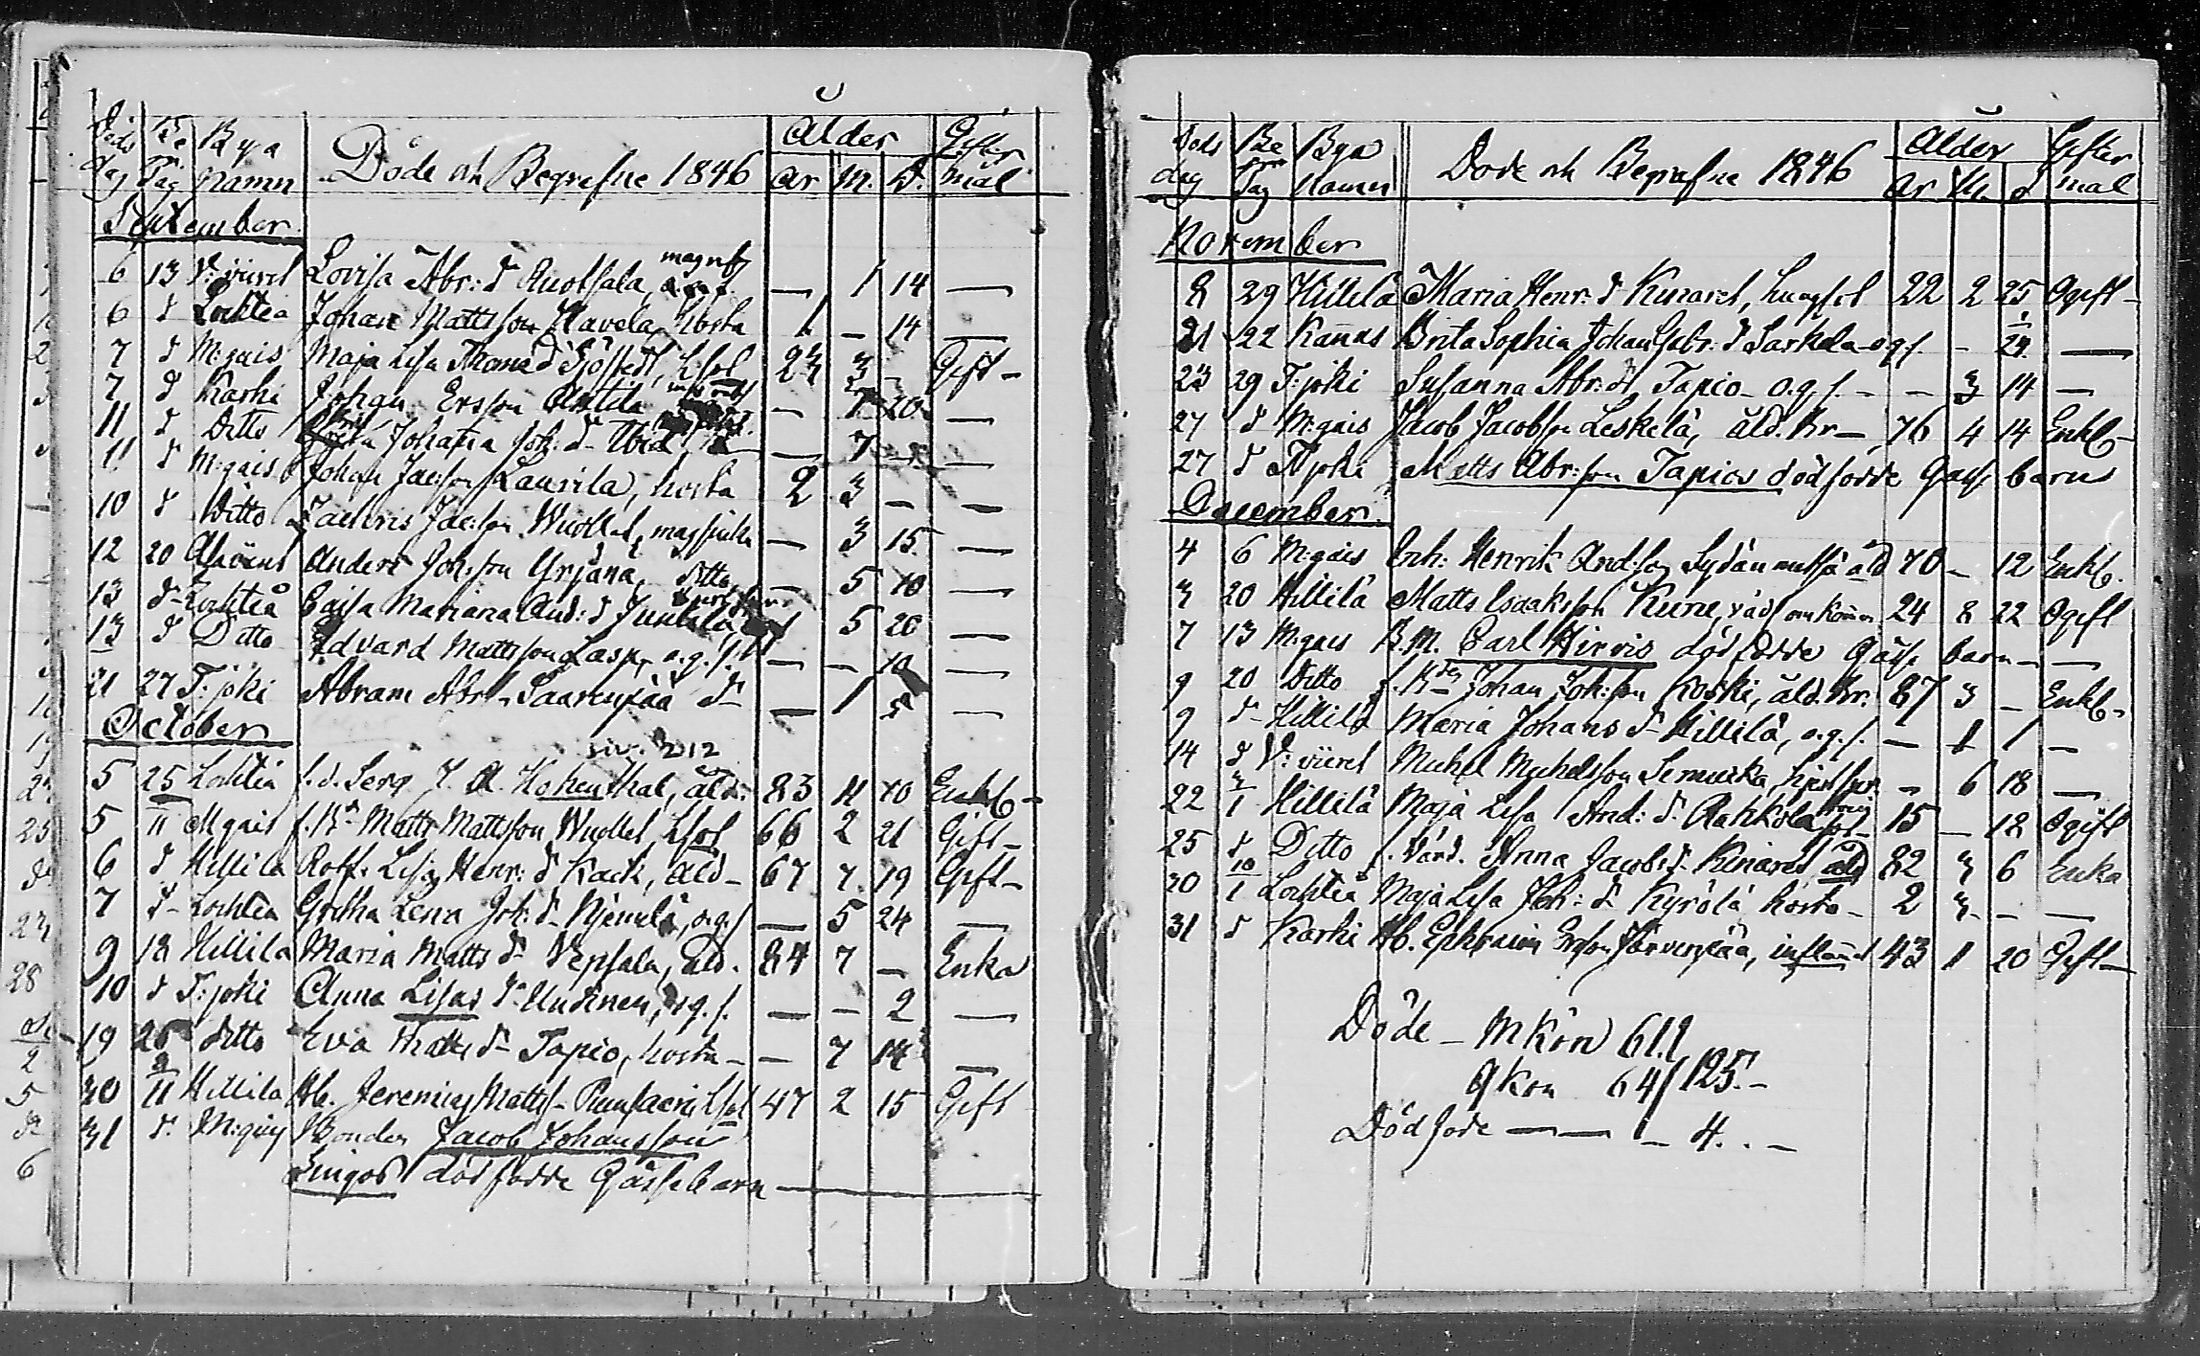 Döds Be Bya Döde och Begrafne 1846 Ålder Gifter
dag Dag Namn År M. D. mål
September
6 13 V:viiret Lovisa Abr:d Anotsala, magref — 1 14 —
6 d Lochteå Johan Mattsson Havela, hosta 1 — 14 —
7 d M:gais Maja Lisa Thomasd Sjöstedt, Lsot 23 3 - Gift -
7 d Karhi Johan Ersson Anttila — 20 —
11 d Ditto Johanna Joh:d — 7 —
11 d M:gais Johan Jacsson Laurila, hosta 2 3 — —
10 d Ditto Zachris Jac:son Wuollet, magsjuka — 3 15 —
12 20 Anders Joh:son Yrjänä, ditto — 5 10 —
13 d- Lochteå Cajsa Mariana And:d Junkala 5 20 —
13 d Ditto Edvard Mattsson Lasp, o.g.s. — — 10 —
21 27 T:joki Abram Abr:s Saarenpää d- — 1 5 —
October
siv. 212
5 25 Lochteå f.d. Serg J. A. Hohenthal, åld: 83 11 10 Enkl -
5 11 M:gais f.Bd Matts Mattsson Wuollet Lsot 66 2 21 Gift -
6 d Hillilä Rotf. Lisa Henr:d Kack, åld - 67 7 19 Gift -
7 d- Lochteå Gretha Lena Joh:d- Njemelä, o.g.s — 5 24 —
9 18 Hillilä Maria Matts d- Vepsälä, åld. 84 7 — Enka
10 d T:joki Anna Lisas d- Uusinen, o.g.s. — — 2 —
19 25 ditto Eva Matts d- Tapio, hosta - — 7 14 —
30 11 Hillilä Hb. Jeremias Matts- Lsot 47 2 15 Gift
31 d. M:gais Bonden Jacob Johansson
Lingos dödfödde Gåssebarn —
Döds Be Bya Döde och Begrafne 1846 Ålder Gifter
dag Dag Namn År M. d mål
November
8 29 Hillilä Maria Henr:d Kinaret, lungsot 22 2 25 Ogift -
21 22 Kannus Brita Sophia Johan Gabr:d Särkelä o.g.s. - 1/24 —
23 29 T:joki Susanna Abr:d Tapio - o.g.s. - - 3 14 —
27 d M:gais Jacob Jacobsson Leskelä, åld. Kr — 76 4 14 Enkl -
27 d T:joki Matts Abr:son Tapios dödfödde Gåsse barns
December
4 6 M:gais Inh: Henrik And:son Sydänmetsä åld 70 - 12 Enkl.
3 20 Hillilä Matts Isaksson Kune, vådl omkomm 24 8 22 Ogift
7 13 M:gais B.M. Carl Hirvis dödfödde Gåsse barn — —
9 20 Ditto f.Bd Johan Joh:son Koski, åld. Kr: 87 3 — Enkl -
9 d- Hillilä Maria Johans d- Hillilä, o.g.s. — 1 1 —
14 d V:viiret Michel Michelsson — 6 18 —
22 3/1 Hillilä Maja Lisa And:d- Rahkola 15 — 18 Ogift
25 d Ditto f. Värd. Anna Jacobs d- Kinaret, åld 82 3 6 Enka
30 10/1 Lochteå Maja Lisa Joh:d- Kyrölä hosta - 2 3 - —
31 d Karhi Hb. Ephraim Ersson Järvenpää, inflam 43 1 20 Gift —
Döde - MKön 61.
QKön 64 125.-
Dödföde — — — 4. . -